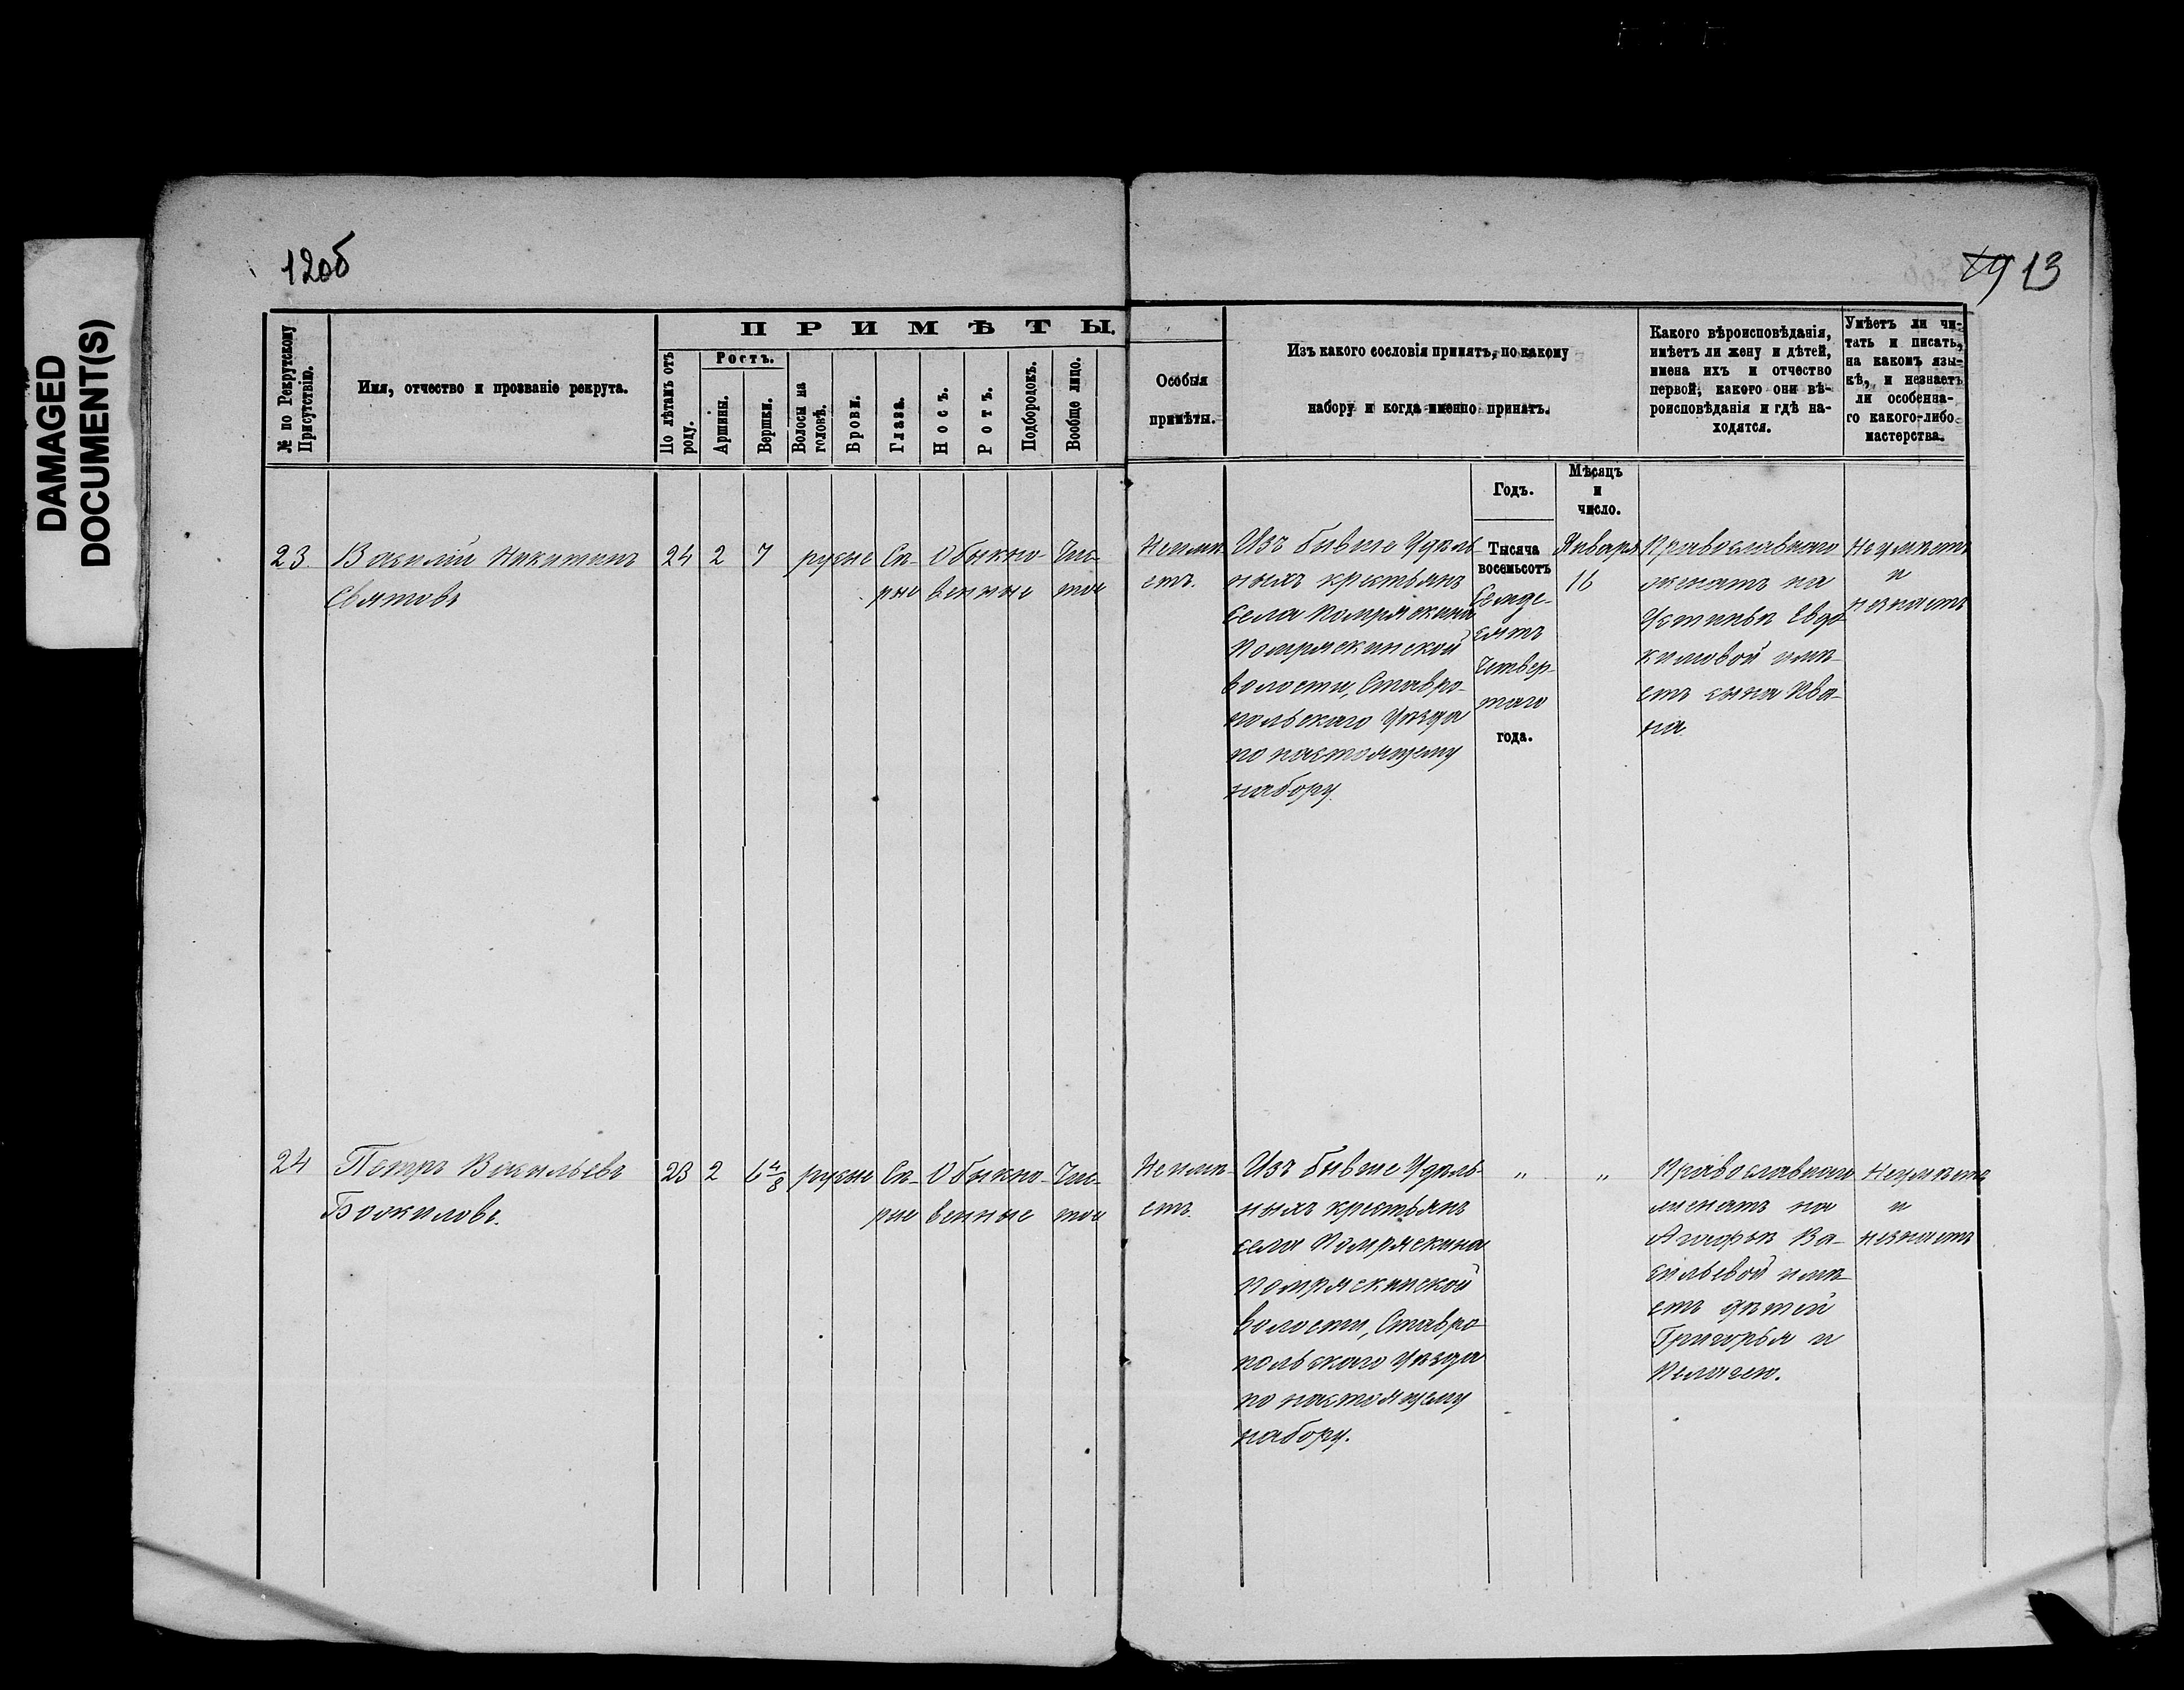 DAMAGED
DOCUMENT(S)
12об
19 13
№ по Рекрутскому
Присутствію.
Имя, отчество и прозваніе рекрута.
ПРИМѢТЫ.
По лѣтамъ отъ
роду.
Ростъ.
Аршины.
Вершки.
Волосы на
головѣ.
Брови.
Глаза.
Носъ.
Ротъ.
Подбородокъ.
Вообще лицо.
Особыя
примѣты.
Изъ какого сословія принятъ, по какому
набору и когда именно принятъ.
Какого вѣроисповѣданія,
имѣетъ ли жену и дѣтей,
имена ихъ и отчество
первой, какого они вѣ-
роисповѣданія и гдѣ на-
ходятся.
Умѣетъ ли чи-
тать и писать,
на какомъ язы-
кѣ, и незнаетъ
ли особенна-
го какого-либо
мастерства.
Годъ.
Мѣсяцъ
и
число.
23. Василій Никитинъ
Святовъ
24 2 7 русые Сѣ- Обыкно- Чис-
рые венные тое
Неимѣ-
етъ.
Изъ бывше Удѣль-
ныхъ крестьянъ
села Помряскина
Помряскинской
волости, Ставро-
польскаго Уѣзда
по настоящему
набору.
Тысяча
восемьсотъ
Семде-
сятъ
Четвер-
таго
года.
Января
16
Православнаго
женатъ на
Устиньѣ Евдо-
кимовой имѣ-
етъ сына Ива-
на.
Неумѣетъ
и
незнаетъ
24 Петръ Васильевъ
23 2 6 4/8 русые Сѣ- Обыкно- Чис-
рые венные тое
Неимѣ-
етъ.
Изъ бывше Удѣль-
ныхъ крестьянъ
села Помряскина
Помряскинской
волости, Ставро-
польскаго Уѣзда
по настоящему
набору.
" "
Православнаго
женатъ на
Агафьѣ Ва-
сильевой имѣ-
етъ дѣтей
Григорья и
Пелагею.
Неумѣетъ
и
незнаетъ